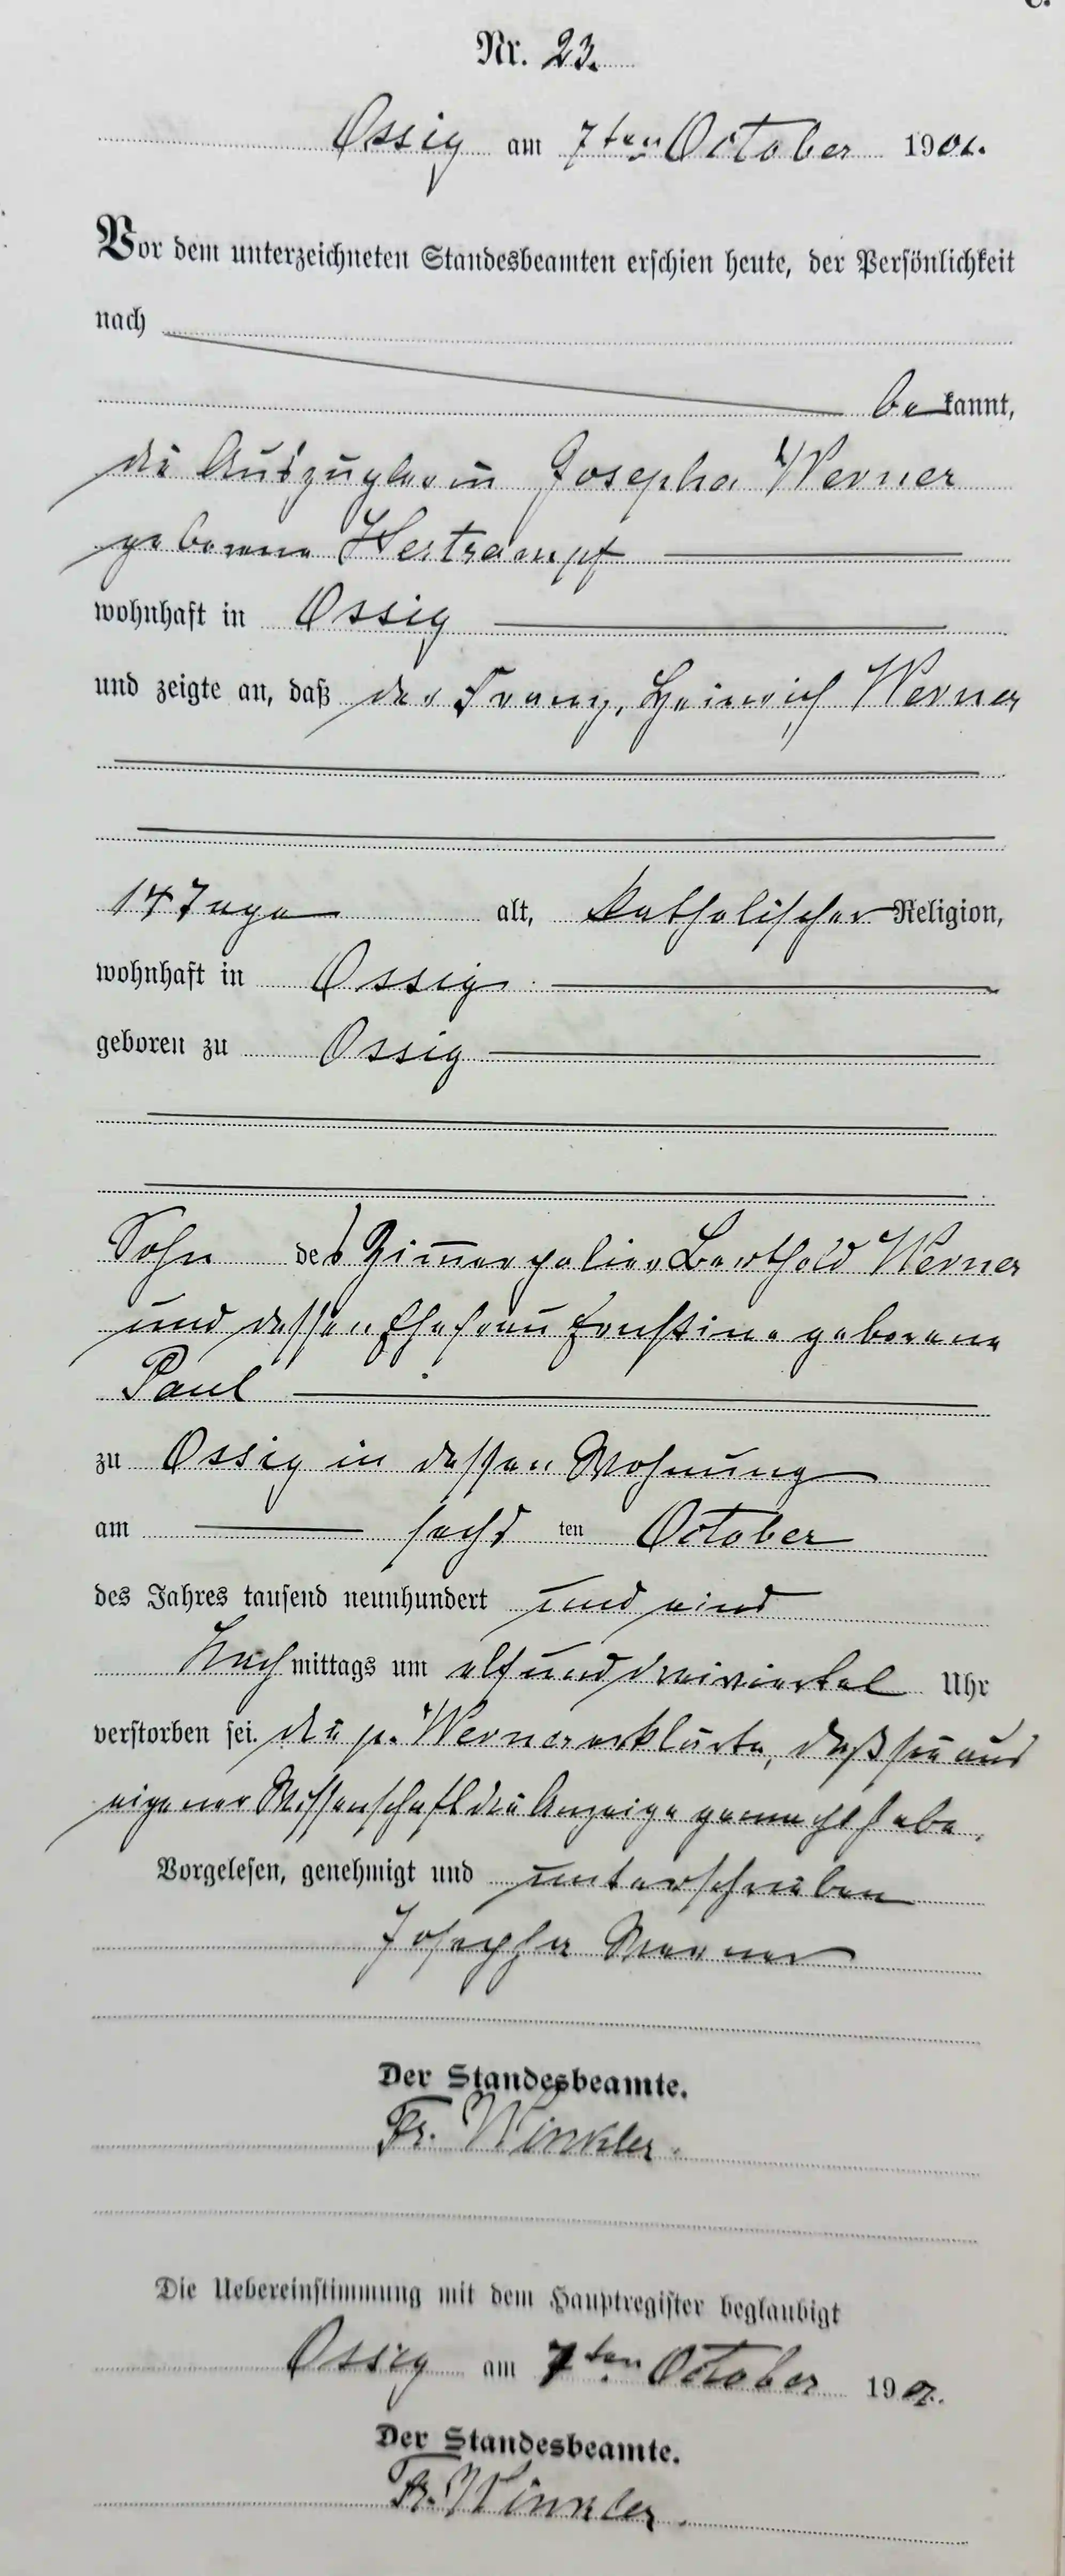 C.
Nr. 23.
Ossig am 7ten October 1901.
Vor dem unterzeichneten Standesbeamten erschien heute, der Persönlichkeit
nach
be kannt,
die Auszüglerin Josepha Werner
geborene Hertrampf
wohnhaft in Ossig
und zeigte an, daß der Franz, Heinrich Werner
14 Tage alt, katholischer Religion,
wohnhaft in Ossig
geboren zu Ossig
Sohn des Zimmerpolier Berthold Werner
und dessen Ehefrau Ernstine geborene
Paul
zu Ossig in dessen Wohnung
am sechs ten October
des Jahres tausend neunhundert und eins
Nach mittags um elf und dreiviertel Uhr
verstorben sei. die p. Werner erklärte, daß sie aus
eigener Wissenschaft die Anzeige gemacht habe.
Vorgelesen, genehmigt und unterschrieben
Josepha Werner
Der Standesbeamte.
Fr. Winkler.
Die Uebereinstimmung mit dem Hauptregister beglaubigt
Ossig am 7ten October 1901.
Der Standesbeamte.
Fr. Winkler.